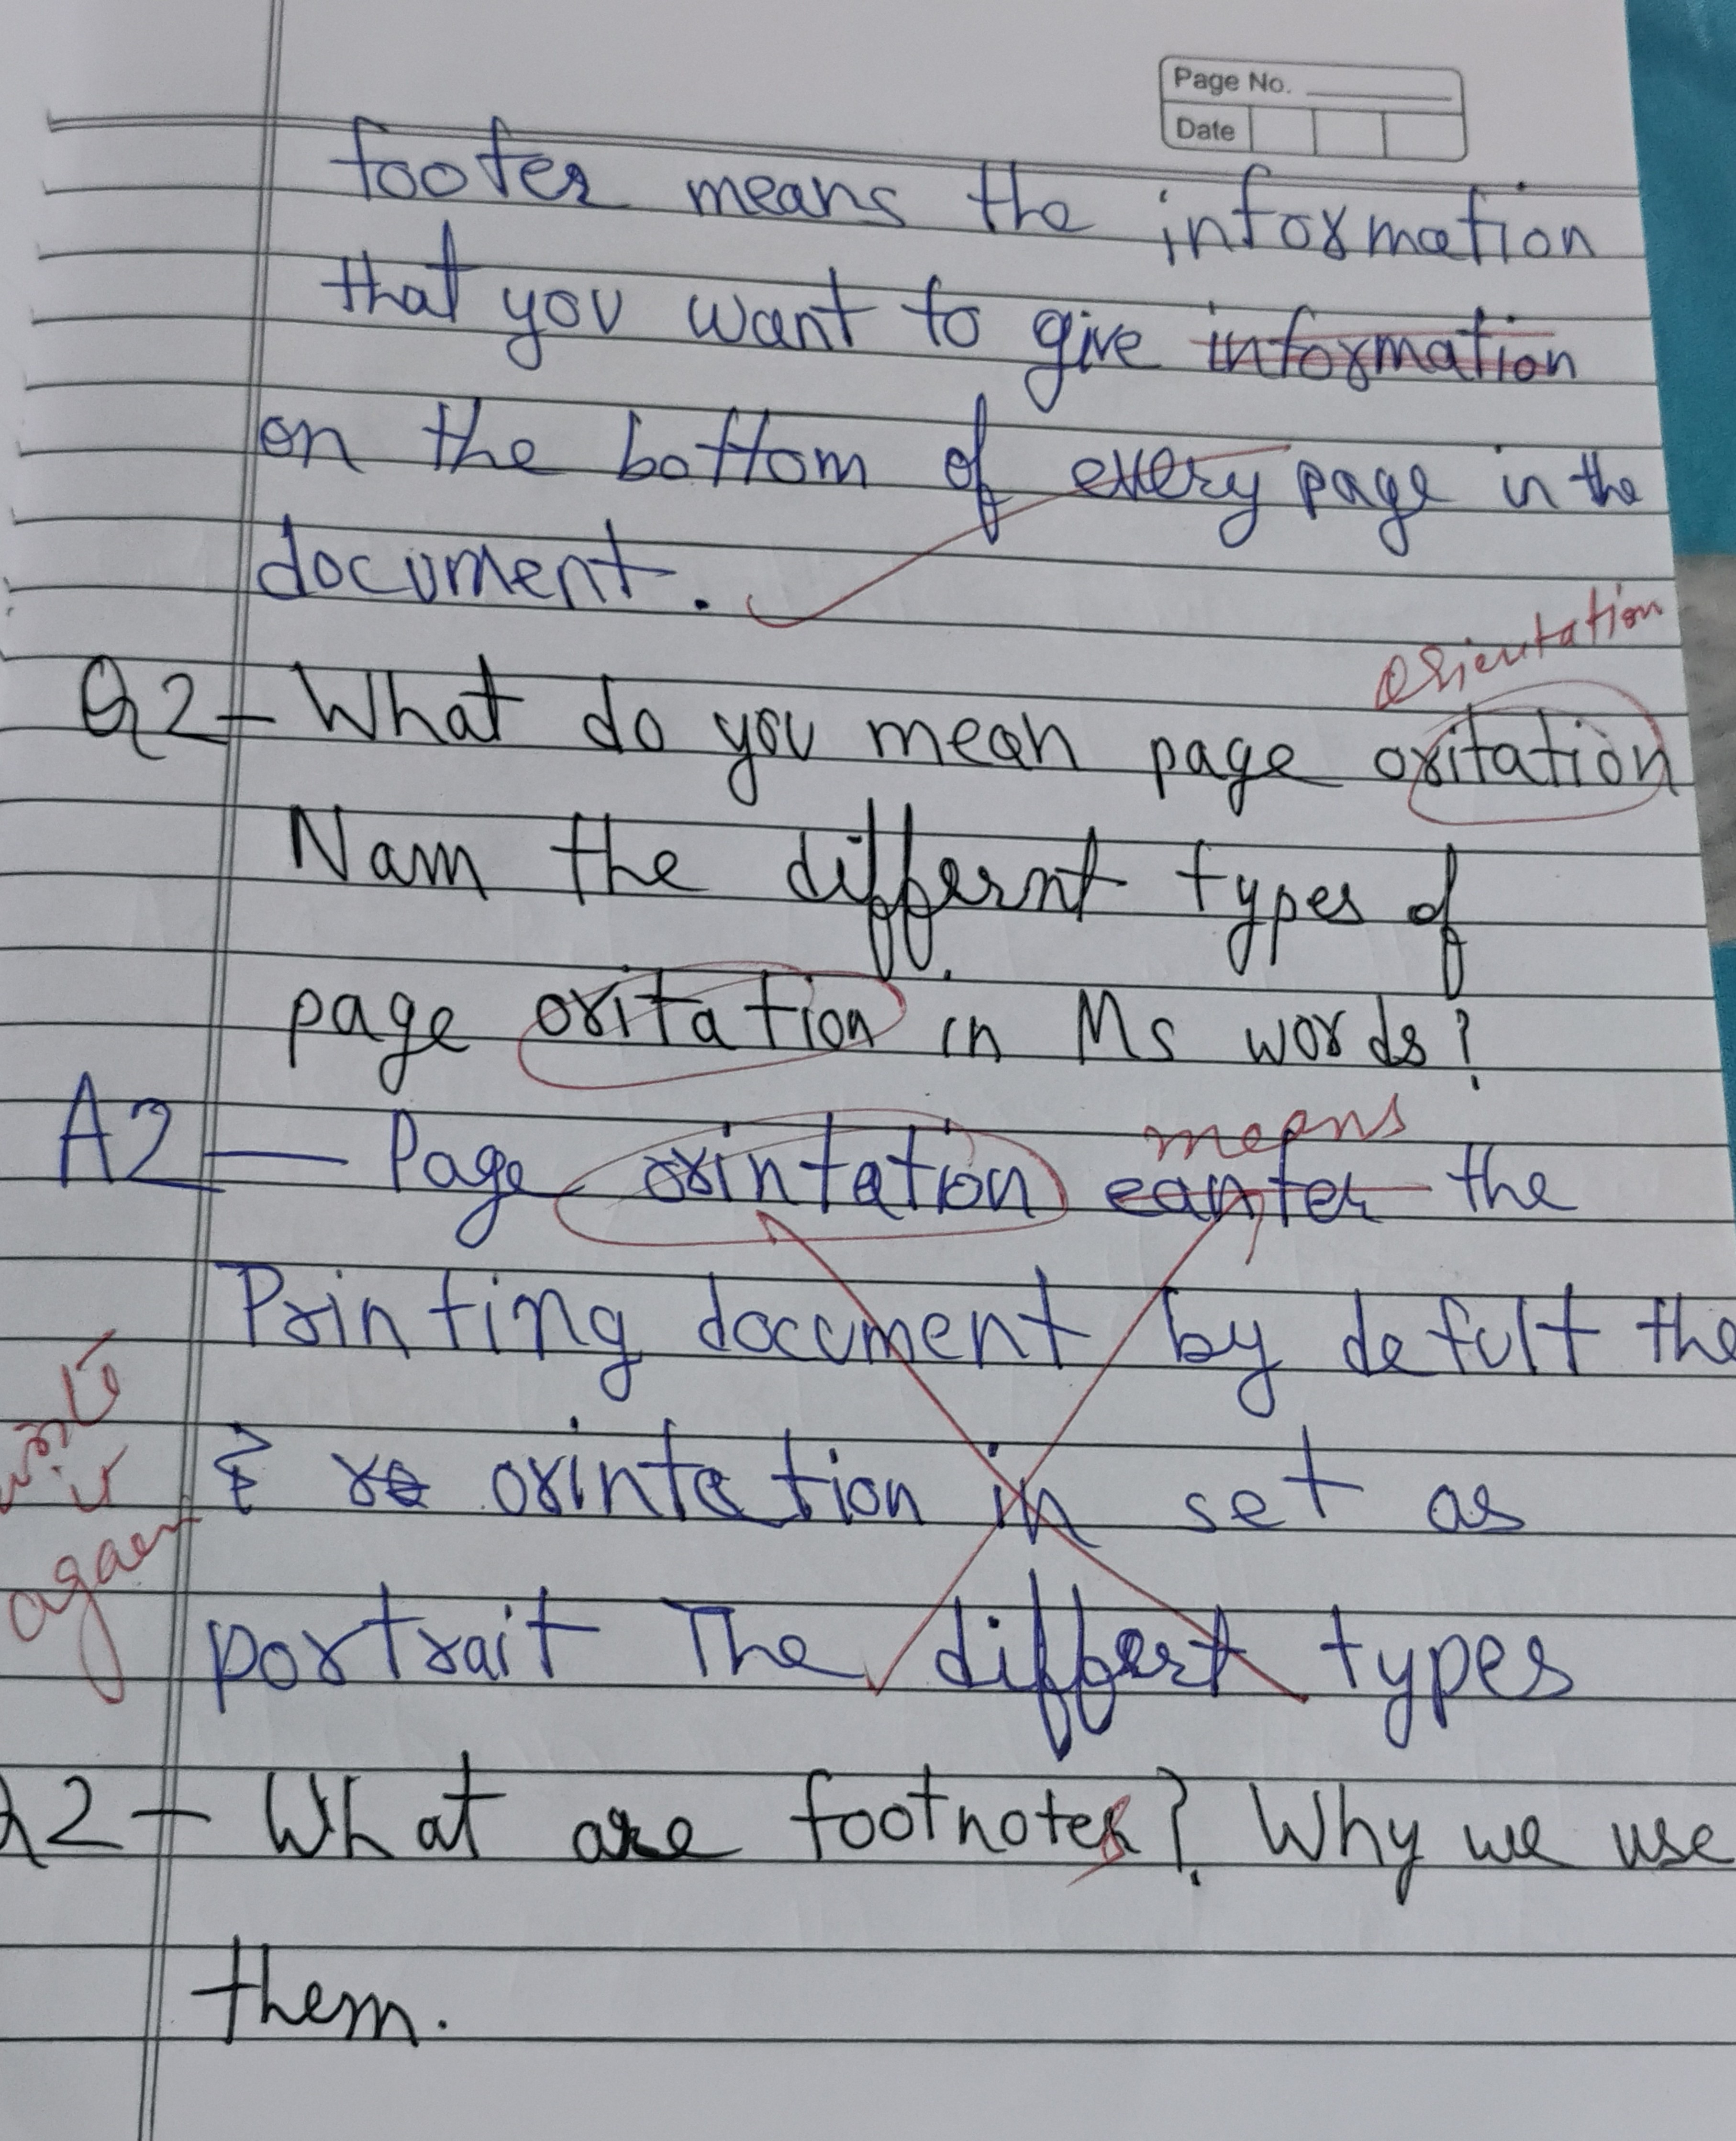 Page No.
Date
footer means the information
that you want to give information
on the bottom of every page in the
document.
Orientation
Q2 - What do you mean page oritation
Nam the differnt types of
page oritation in Ms words?
means
A2 - Page orintation the
Printing document by defult the
orintation in set as
write
it
again
portrait The differt types
Q2 - What are footnotes? Why we use
them.